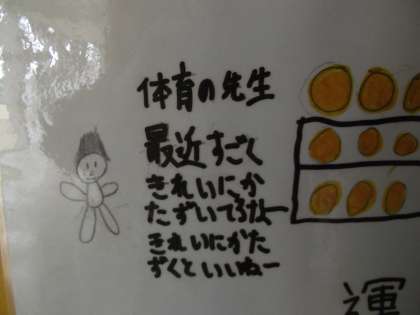 体育の先生
最近すごく
きれいにか
たずいてるなー
きれいにがた
ずくといいねー
運